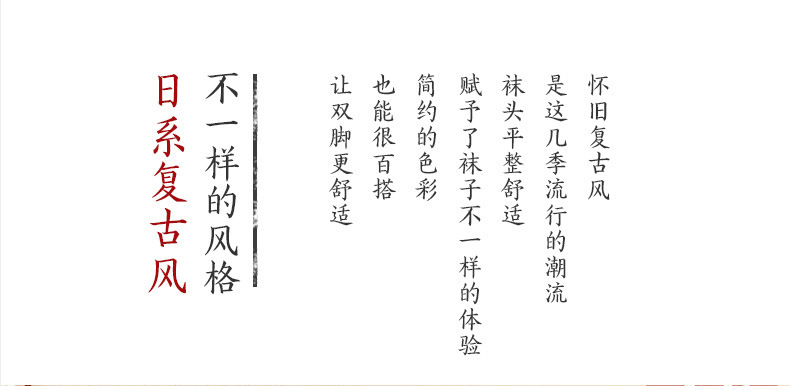 怀旧复古风
是这几季流行的潮流
袜头平整舒适
赋予了袜子不一样的体验
简约的色彩
也能很百搭
让双脚更舒适
不一样的风格
日系复古风